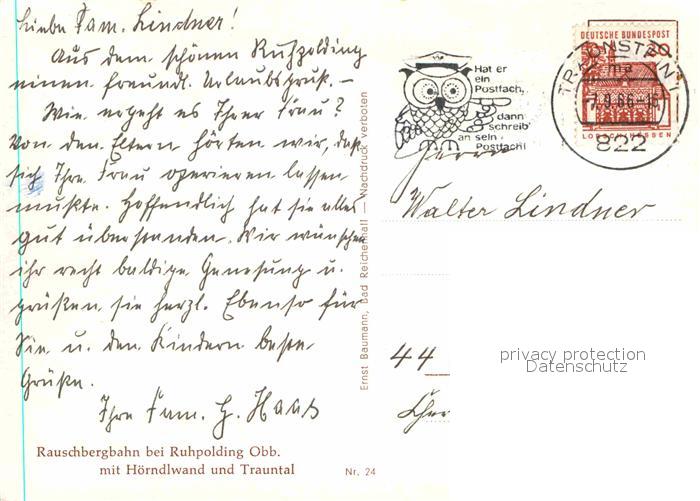 Liebe Fam. Lindner!
Aus dem schönen Ruhpolding
einen freundl. Urlaubsgruß. –
Wie ergeht es Ihrer Frau?
Von den Eltern hörten wir, daß
sich Ihre Frau operieren lassen
mußte. Hoffendlich hat sie alles
gut überstanden. Wir wünschen
ihr recht baldige Genesung u.
grüßen sie herzl. Ebenso für
Sie u. den Kindern beste
Grüße.
Ihre Fam. H. Haas
Rauschbergbahn bei Ruhpolding Obb.
mit Hörndlwand und Trauntal
Nr. 24
Ernst Baumann, Bad Reichenhall — Nachdruck verboten
Hat er
ein
Postfach,
dann
schreib'
an sein
Postfach!
DEUTSCHE BUNDESPOST
20
LORSCH/HESSEN
TRAUNSTEIN 1
ma
-7.9.66-18
822
Herrn
Walter Lindner
44
privacy protection
Datenschutz